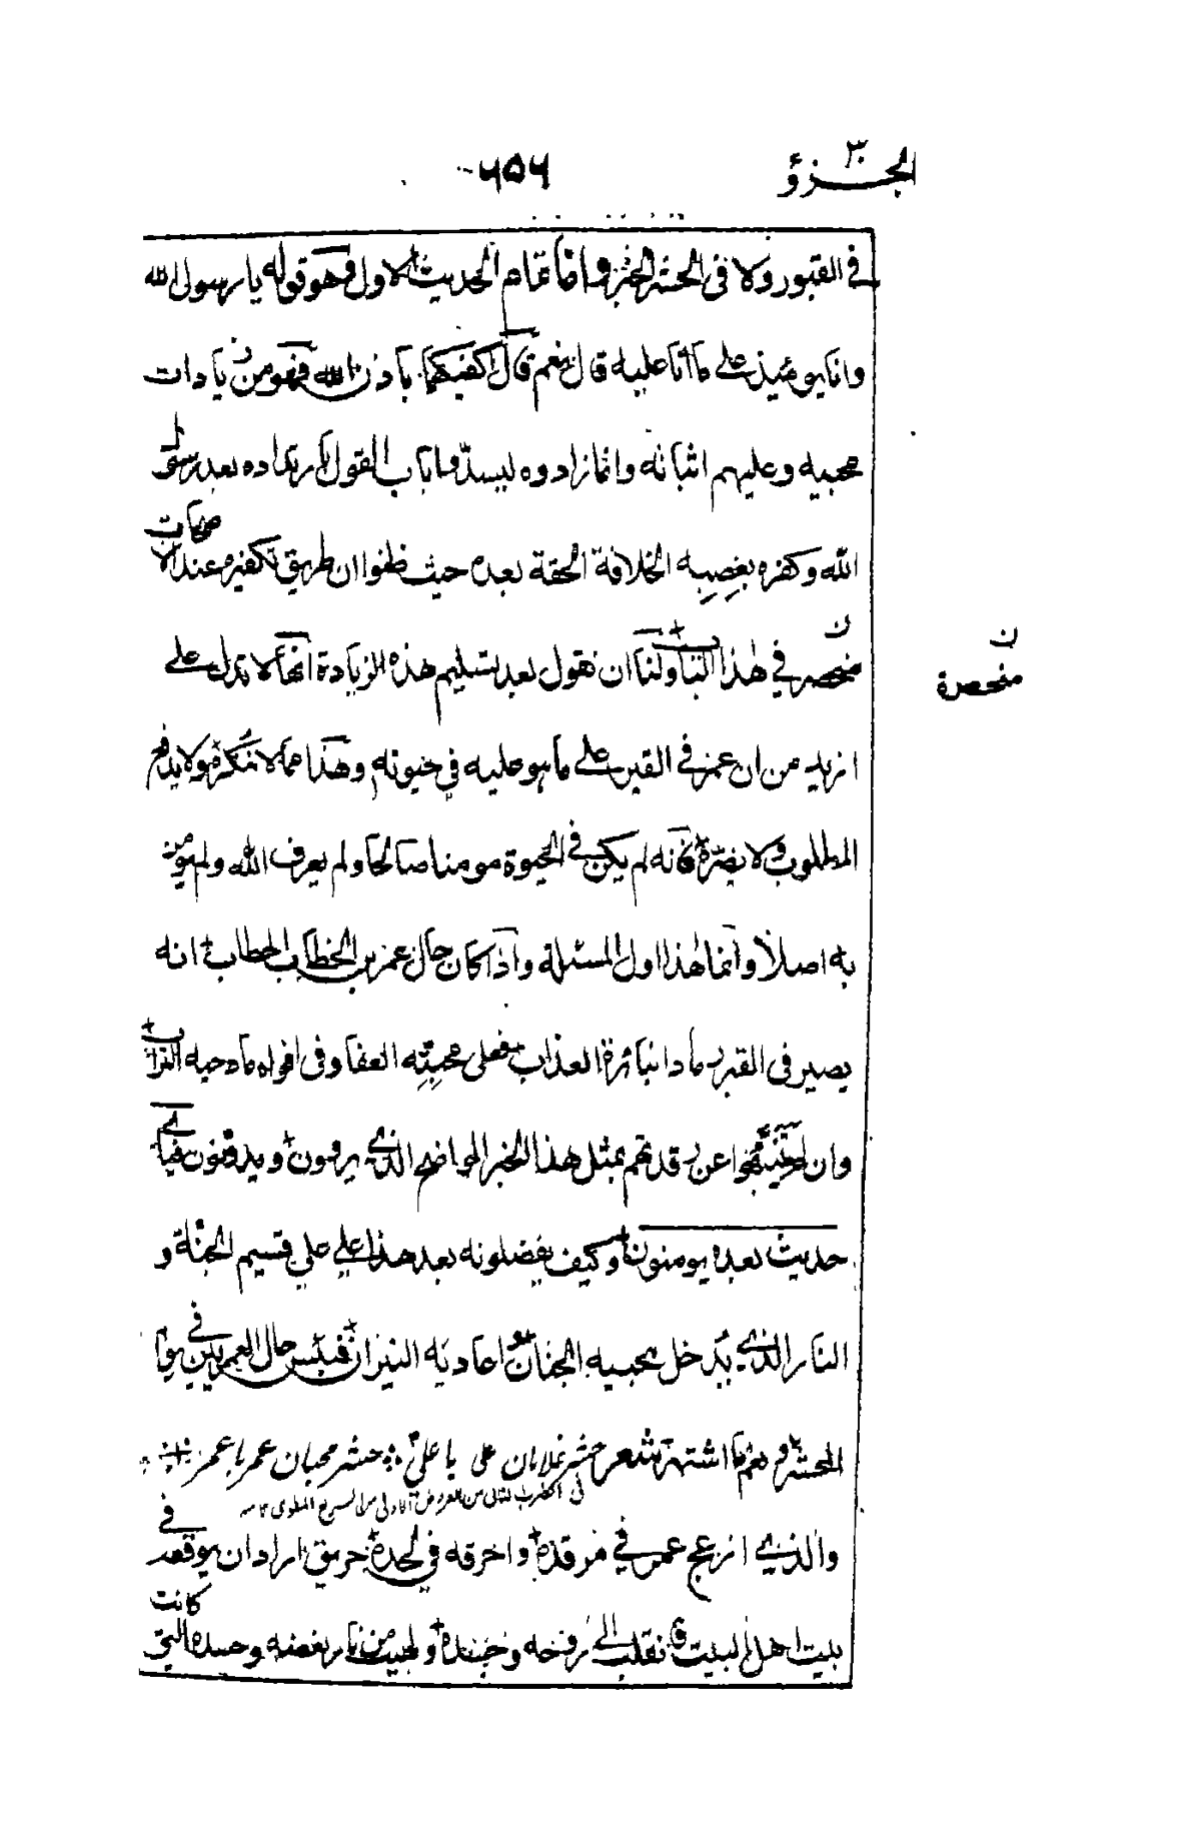 الجزؤ ٣
٦٥٦
في القبور ولا فى الحشر الخبر واما تمام الحديث الاول فهو قوله يا رسول الله
وانا يومئذ على ما انا عليه قال نعم قال اكفيكهما باذن الله فهو من زيادات
محبيه وعليهم اثباته وانما زادوه ليسدوا باب القول بارتداده بعد رسول
الله وكفره بغصبه الخلافة الحقة بعده حيث ظنوا ان طريق تكفيره عند
منحصر في هذا الباب ولنا ان نقول بعد تسليم هذه الزيادة انها لا تدل على
ازيد من ان عمر في القبر على ما هو عليه في حيوته وهذا مما لا ننكره ولا يدفع
المطلوب ولا يضره فانه لم يكن في الحيوة مومنا صالحا ولم يعرف الله ولم يومن
به اصلا وانما هذا اول المسئلة واذا كان حال عمر بن الخطاب الحطاب انه
يصير فى القبر رمادا بنائرة العذاب فعلى محبيه العفا وفى افواه مادحيه التراب
وان لم ينتبهوا عن رقدتهم بمثل هذا الخبر الواضح الذي يروون ويدفنون فباي
حديث بعده يومنون وكيف يفضلونه بعد هذا على علي قسيم الجنة و
النار الذي يدخل محبيه الجنان اعاديه النيران فبئس حال العمريين في يوم
المحشر ونعم ما اشتهر شعر حشر غلامان على با علي حشر محبان عمر با عمر
والذي ازعج عمر في مرقده واحرقه في لحده حريق اراد ان يوقعه في
بيت اهل البيت فانقلب الى روحه وجسده ولهيب من نار بغضه وحسده التي
كانت
ن
منحصرة